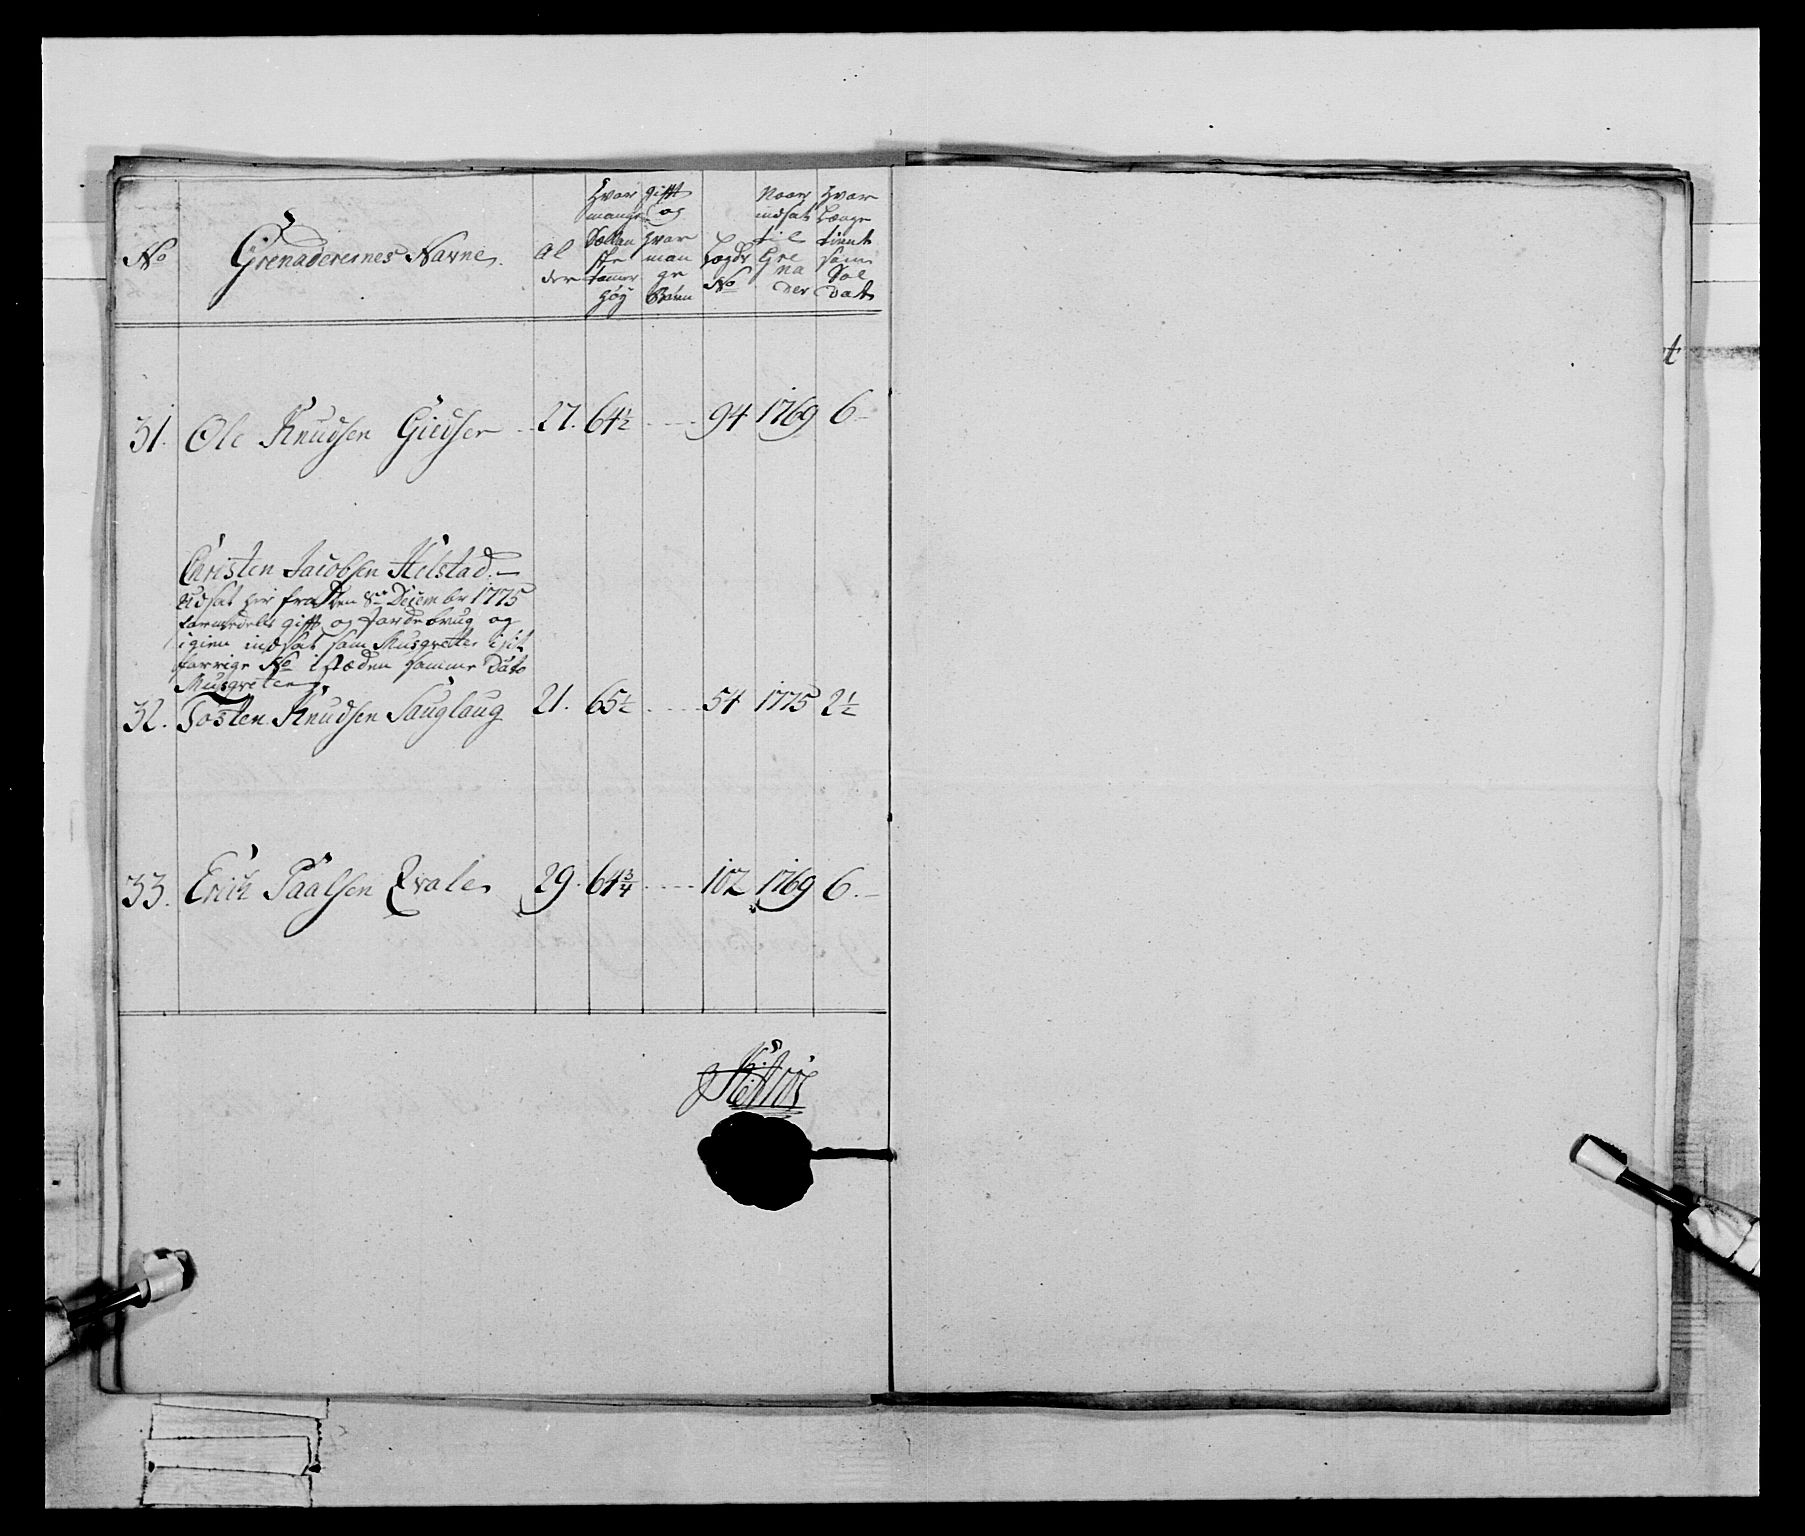 No
Grenaderernes Navne
Al
der
Hvor
mange
Sællan
ske
tomer
høy
gifft
og
hvor
man
ge
Børn
Lægds
No
Naar
indsat
til
Gre
na
der
Hvor
længe
tient
som
Sol
dat
31. Ole Knudsen Giedser 27. 64½ 94 1769 6
Christen Jacobsen Kilstad
Udsat her fra den 8de December 1775
formedelst gifft og Jordebrug og
igien indsat som Musqvetter i sit
forrige No i stæden samme Dato
Musqveteer
32. Tosten Knudsen Sauglaug 21. 65½ 54 1775 2½
33. Erich Paalsen Qvale 29. 64¾ 102 1769 6.